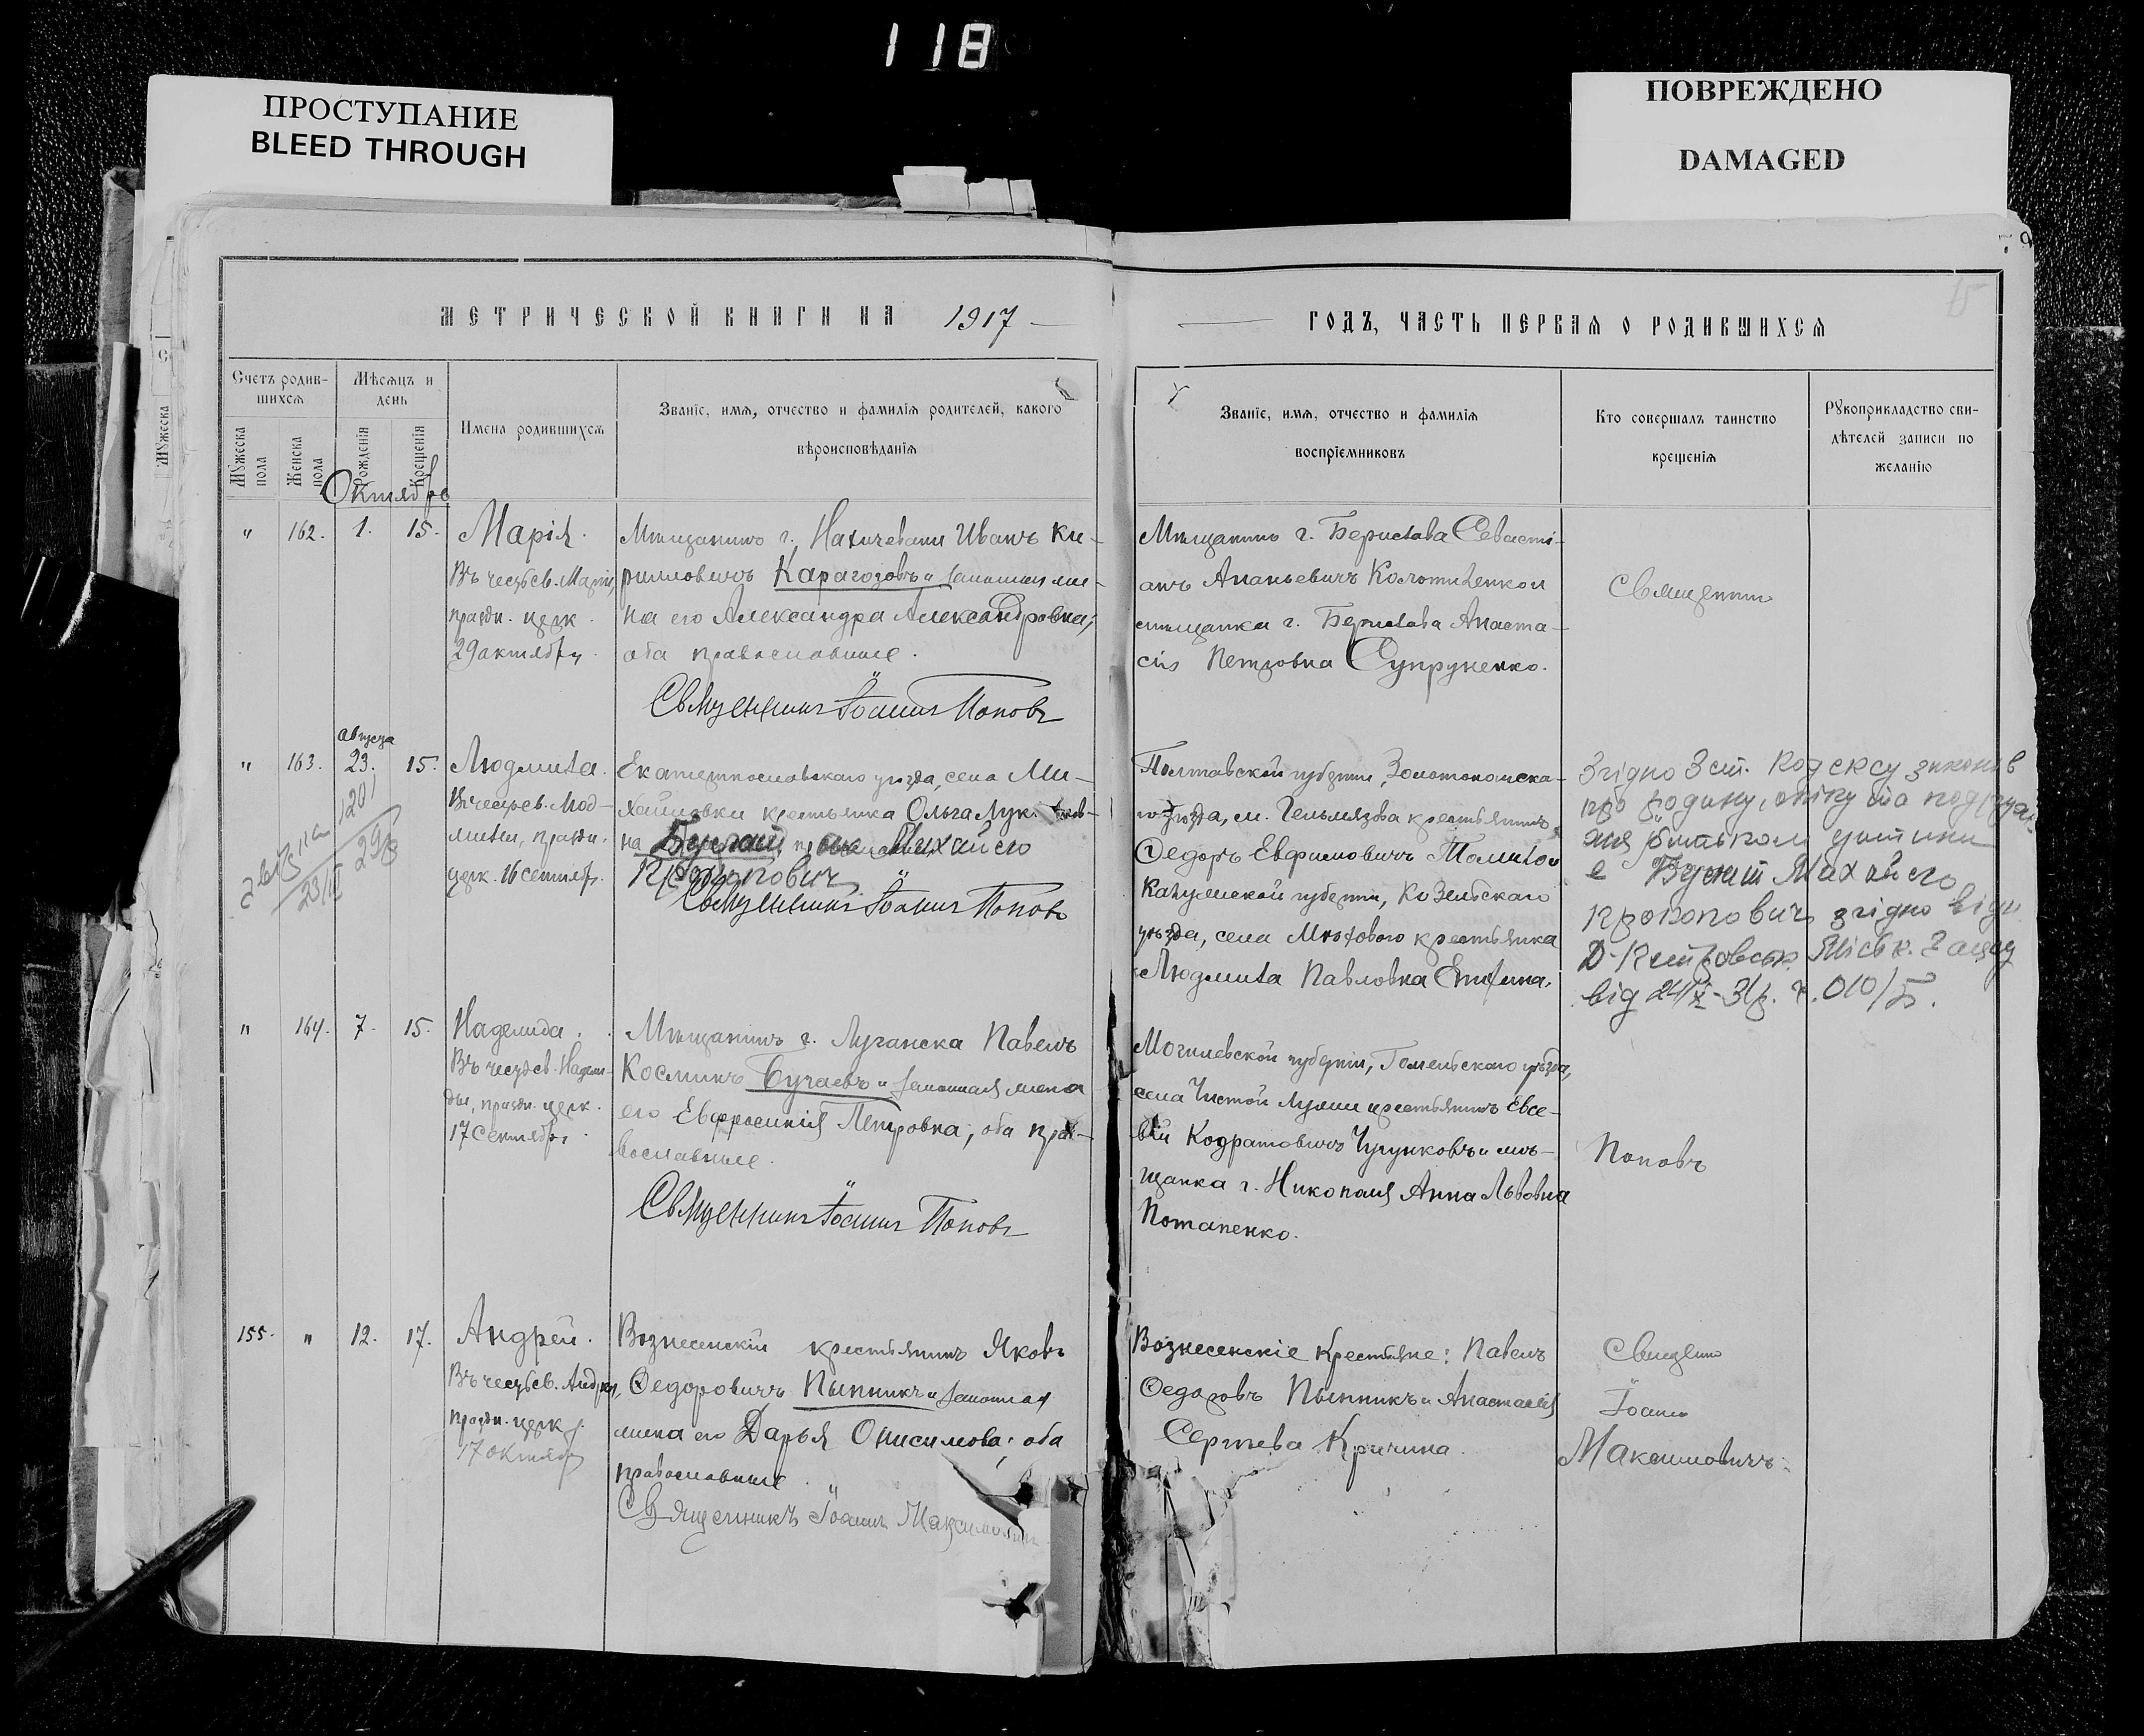 118
ПРОСТУПАНИЕ
BLEED THROUGH
ПОВРЕЖДЕНО
DAMAGED
МЕТРИЧЕСКОЙ КНИГИ НА 1917
ГОДЪ, ЧАСТЬ ПЕРВАЯ О РОДИВШИХСЯ
Счетъ родив-
шихся
Мужеска пола
Женска пола
Мѣсяцъ и
день
Рожденія
Крещенія
Имена родившихся
Званіе, имя, отчество и фамилія родителей, какого
вѣроисповѣданія
Званіе, имя, отчество и фамилія
воспріемниковъ
Кто совершалъ таинство
крещенія
Рукоприкладство сви-
дѣтелей записи по
желанію
Октябрь
" 162. 1. 15.
Марія.
Въ честь св. Маріи,
праздн. церк.
29 октября.
Мѣщанинъ г. Нахичевани Иванъ Ки-
рилловичъ Карагозовъ и законная же-
на его Александра Александровна;
оба православные.
Священникъ Іоаннъ Поповъ
Мѣщанинъ г. Берислава Севасті-
анъ Ананьевичъ
мѣщанка г. Берислава Анаста-
сія Петровна Супруненко.
Священникъ
" 163. августа 23. 15.
Людмила.
В честь св. Люд-
милы, праздн.
церк. 16 сентябр.
Екатеринославскаго уѣзда, села Ми-
хайловки крестьянка Ольга
на Михайло
Священникъ Іоаннъ Поповъ
Полтавской губерніи, Золотоношска-
го уѣзда, м. Гельмязова крестьянинъ
Ѳедоръ Евфимовичъ
Калужской губерніи, Козельскаго
уѣзда, села крестьянка
Людмила Павловна
Згідно 3 ст. Кодексу законів
про родину, опіку та
є Михайло
згідно
від
" 164. 7. 15.
Надежда.
Въ честь св. Надеж-
ды, праздн. церк.
17 сентября.
Мѣщанинъ г. Луганска Павелъ
Косминъ Бугаевъ и законная жена
его Евфросинія Петровна; оба пра-
вославные.
Священникъ Іоаннъ Поповъ
Могилевской губерніи, Гомельскаго уѣзда,
села Чистой Лужи крестьянинъ Евсе-
вій Кодратовичъ Чугунковъ и мѣ-
щанка г. Никополя Анна Львовна
Потапенко.
Поповъ
155. " 12. 17.
Андрей.
Въ честь св. Андрея,
праздн. церк.
17 октября
Вознесенскій крестьянинъ Яковъ
Ѳедоровичъ Пынникъ и законная
жена его Дарья Онисимова; оба
православные.
Священникъ Іоаннъ
Вознесенскіе крестьяне: Павелъ
Ѳедоровъ Пынникъ и Анастасія
Сергѣева
Священ
Іоаннъ
Максимовичъ.